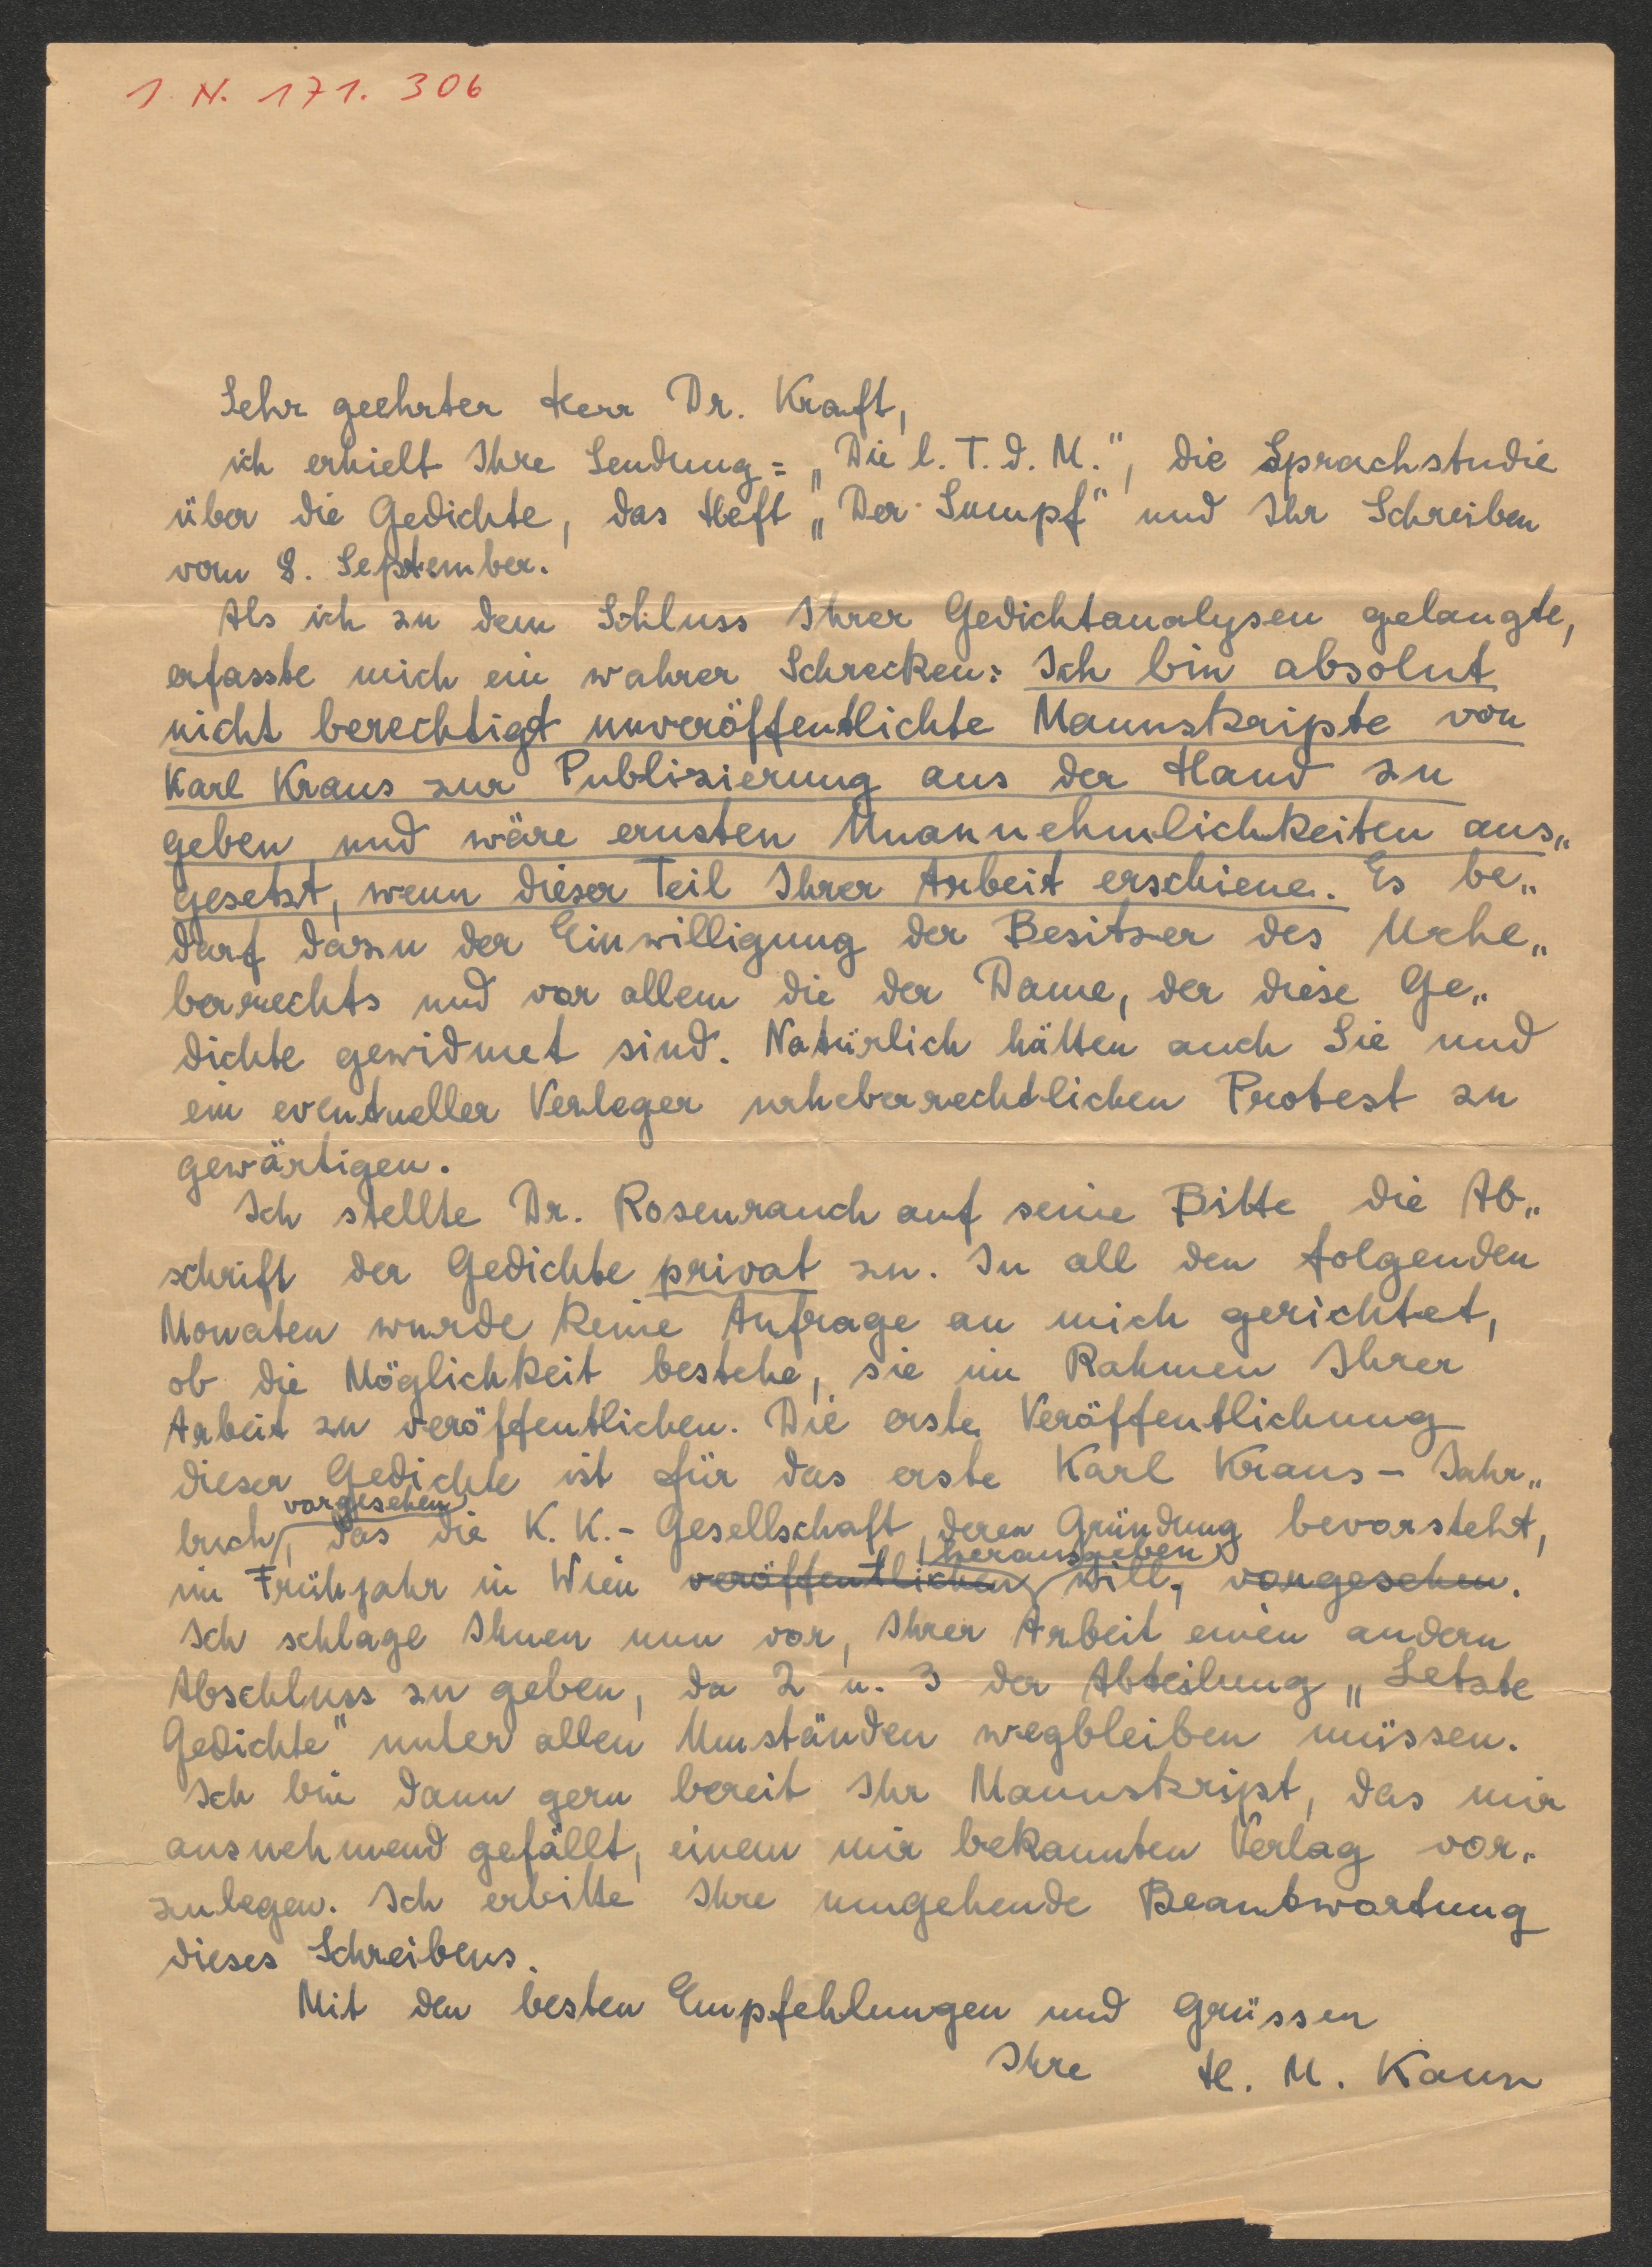 I. N. 171. 306
Sehr geehrter Herr Dr. Kraft,
ich erhielt Ihre Sendung = „Die l. T. d. M.", die Sprachstudie
über die Gedichte, das Heft „Der Sumpf" und Ihr Schreiben
vom 8. September.
Als ich zu dem Schluss Ihrer Gedichtanalysen gelangte,
erfasste mich ein wahrer Schrecken: Ich bin absolut
nicht berechtigt unveröffentlichte Manuskripte von
Karl Kraus zur Publizierung aus der Hand zu
geben und wäre ernsten Unannehmlichkeiten aus„
gesetzt, wenn dieser Teil Ihrer Arbeit erschiene. Es be„
darf dazu der Einwilligung der Besitzer des Urhe„
berrechts und vor allem die der Dame, der diese Ge„
dichte gewidmet sind. Natürlich hätten auch Sie und
ein eventueller Verleger urheberrechtlichen Protest zu
gewärtigen.
Ich stellte Dr. Rosenrauch auf seine Bitte die Ab„
schrift der Gedichte privat zu. In all den folgenden
Monaten wurde keine Anfrage an mich gerichtet,
ob die Möglichkeit bestehe, sie im Rahmen Ihrer
Arbeit zu veröffentlichen. Die erste Veröffentlichung
dieser Gedichte ist für das erste Karl Kraus - Jahr„
vorgesehen
buch, das die K. K. - Gesellschaft, deren Gründung bevorsteht,
herausgeben
im Frühjahr in Wien veröffentlichen will, vorgesehen.
Ich schlage Ihnen nun vor, Ihrer Arbeit einen andern
Abschluss zu geben, da 2 u. 3 der Abteilung „Letzte
Gedichte" unter allen Umständen wegbleiben müssen.
Ich bin dann gern bereit Ihr Manuskript, das mir
ausnehmend gefällt, einem mir bekannten Verlag vor„
zulegen. Ich erbitte Ihre umgehende Beantwortung
dieses Schreibens.
Mit den besten Empfehlungen und Grüssen
Ihre H. M. Kann